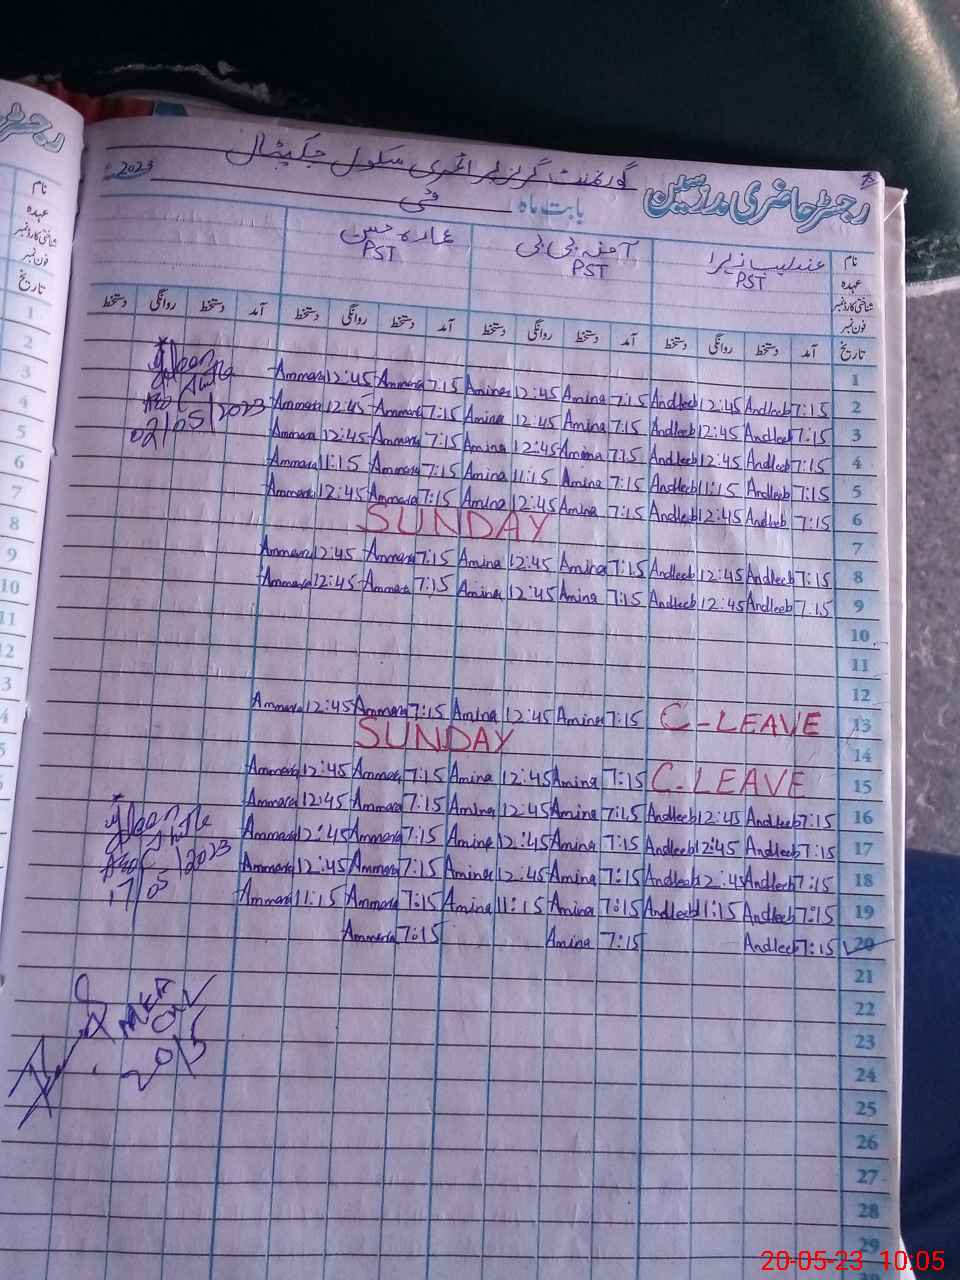 رجسٹر حاضری مدرسین
گورنمنٹ گرلز پرائمری سکول جکیٹال
2023
بابت ماہ مئی
نام عندلیب زہرا آمنہ بی بی عمارہ حسن
عہدہ PST PST PST
شناختی کارڈ نمبر
فون نمبر
تاریخ آمد دستخط روانگی دستخط آمد دستخط روانگی دستخط آمد دستخط روانگی دستخط آمد دستخط روانگی دستخط
1
Ammara 12:45 Ammara 7:15 Amina 12:45 Amina 7:15 Andleeb 12:45 Andleeb 7:15 2
Ammara 12:45 Ammara 7:15 Amina 12:45 Amina 7:15 Andleeb 12:45 Andleeb 7:15 3
Ammara 12:45 Ammara 7:15 Amina 12:45 Amina 7:15 Andleeb 12:45 Andleeb 7:15 4
Ammara 11:15 Ammara 7:15 Amina 11:15 Amina 7:15 Andleeb 11:15 Andleeb 7:15 5
Ammara 12:45 Ammara 7:15 Amina 12:45 Amina 7:15 Andleeb 12:45 Andleeb 7:15 6
SUNDAY 7
Ammara 12:45 Ammara 7:15 Amina 12:45 Amina 7:15 Andleeb 12:45 Andleeb 7:15 8
Ammara 12:45 Ammara 7:15 Amina 12:45 Amina 7:15 Andleeb 12:45 Andleeb 7:15 9
10
11
12
Ammara 12:45 Ammara 7:15 Amina 12:45 Amina 7:15 C-LEAVE 13
SUNDAY 14
Ammara 12:45 Ammara 7:15 Amina 12:45 Amina 7:15 C.LEAVE 15
Ammara 12:45 Ammara 7:15 Amina 12:45 Amina 7:15 Andleeb 12:45 Andleeb 7:15 16
Ammara 12:45 Ammara 7:15 Amine 12:45 Amina 7:15 Andleeb 12:45 Andleeb 7:15 17
Ammara 12:45 Ammara 7:15 Amina 12:45 Amina 7:15 Andleeb 12:45 Andleeb 7:15 18
Ammara 11:15 Ammara 7:15 Amina 11:15 Amina 7:15 Andleeb 11:15 Andleeb 7:15 19
Ammara 7:15 Amina 7:15 Andleeb 7:15 20
21
22
23
24
25
26
27
28
29
02/05/2023
17/05/2023
MEA
20/5
نام
عہدہ
شناختی کارڈ نمبر
فون نمبر
تاریخ
1
2
3
4
5
6
7
8
9
10
11
12
3
4
5
20-05-23 10:05